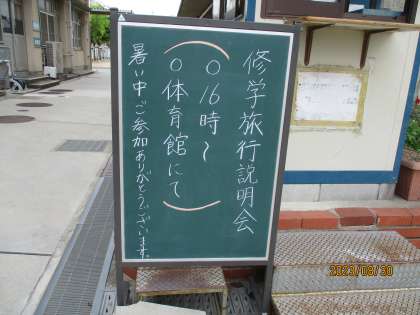 修学旅行説明会
○16時～
○体育館にて
暑い中ご参加ありがとうございます。
2023/08/30